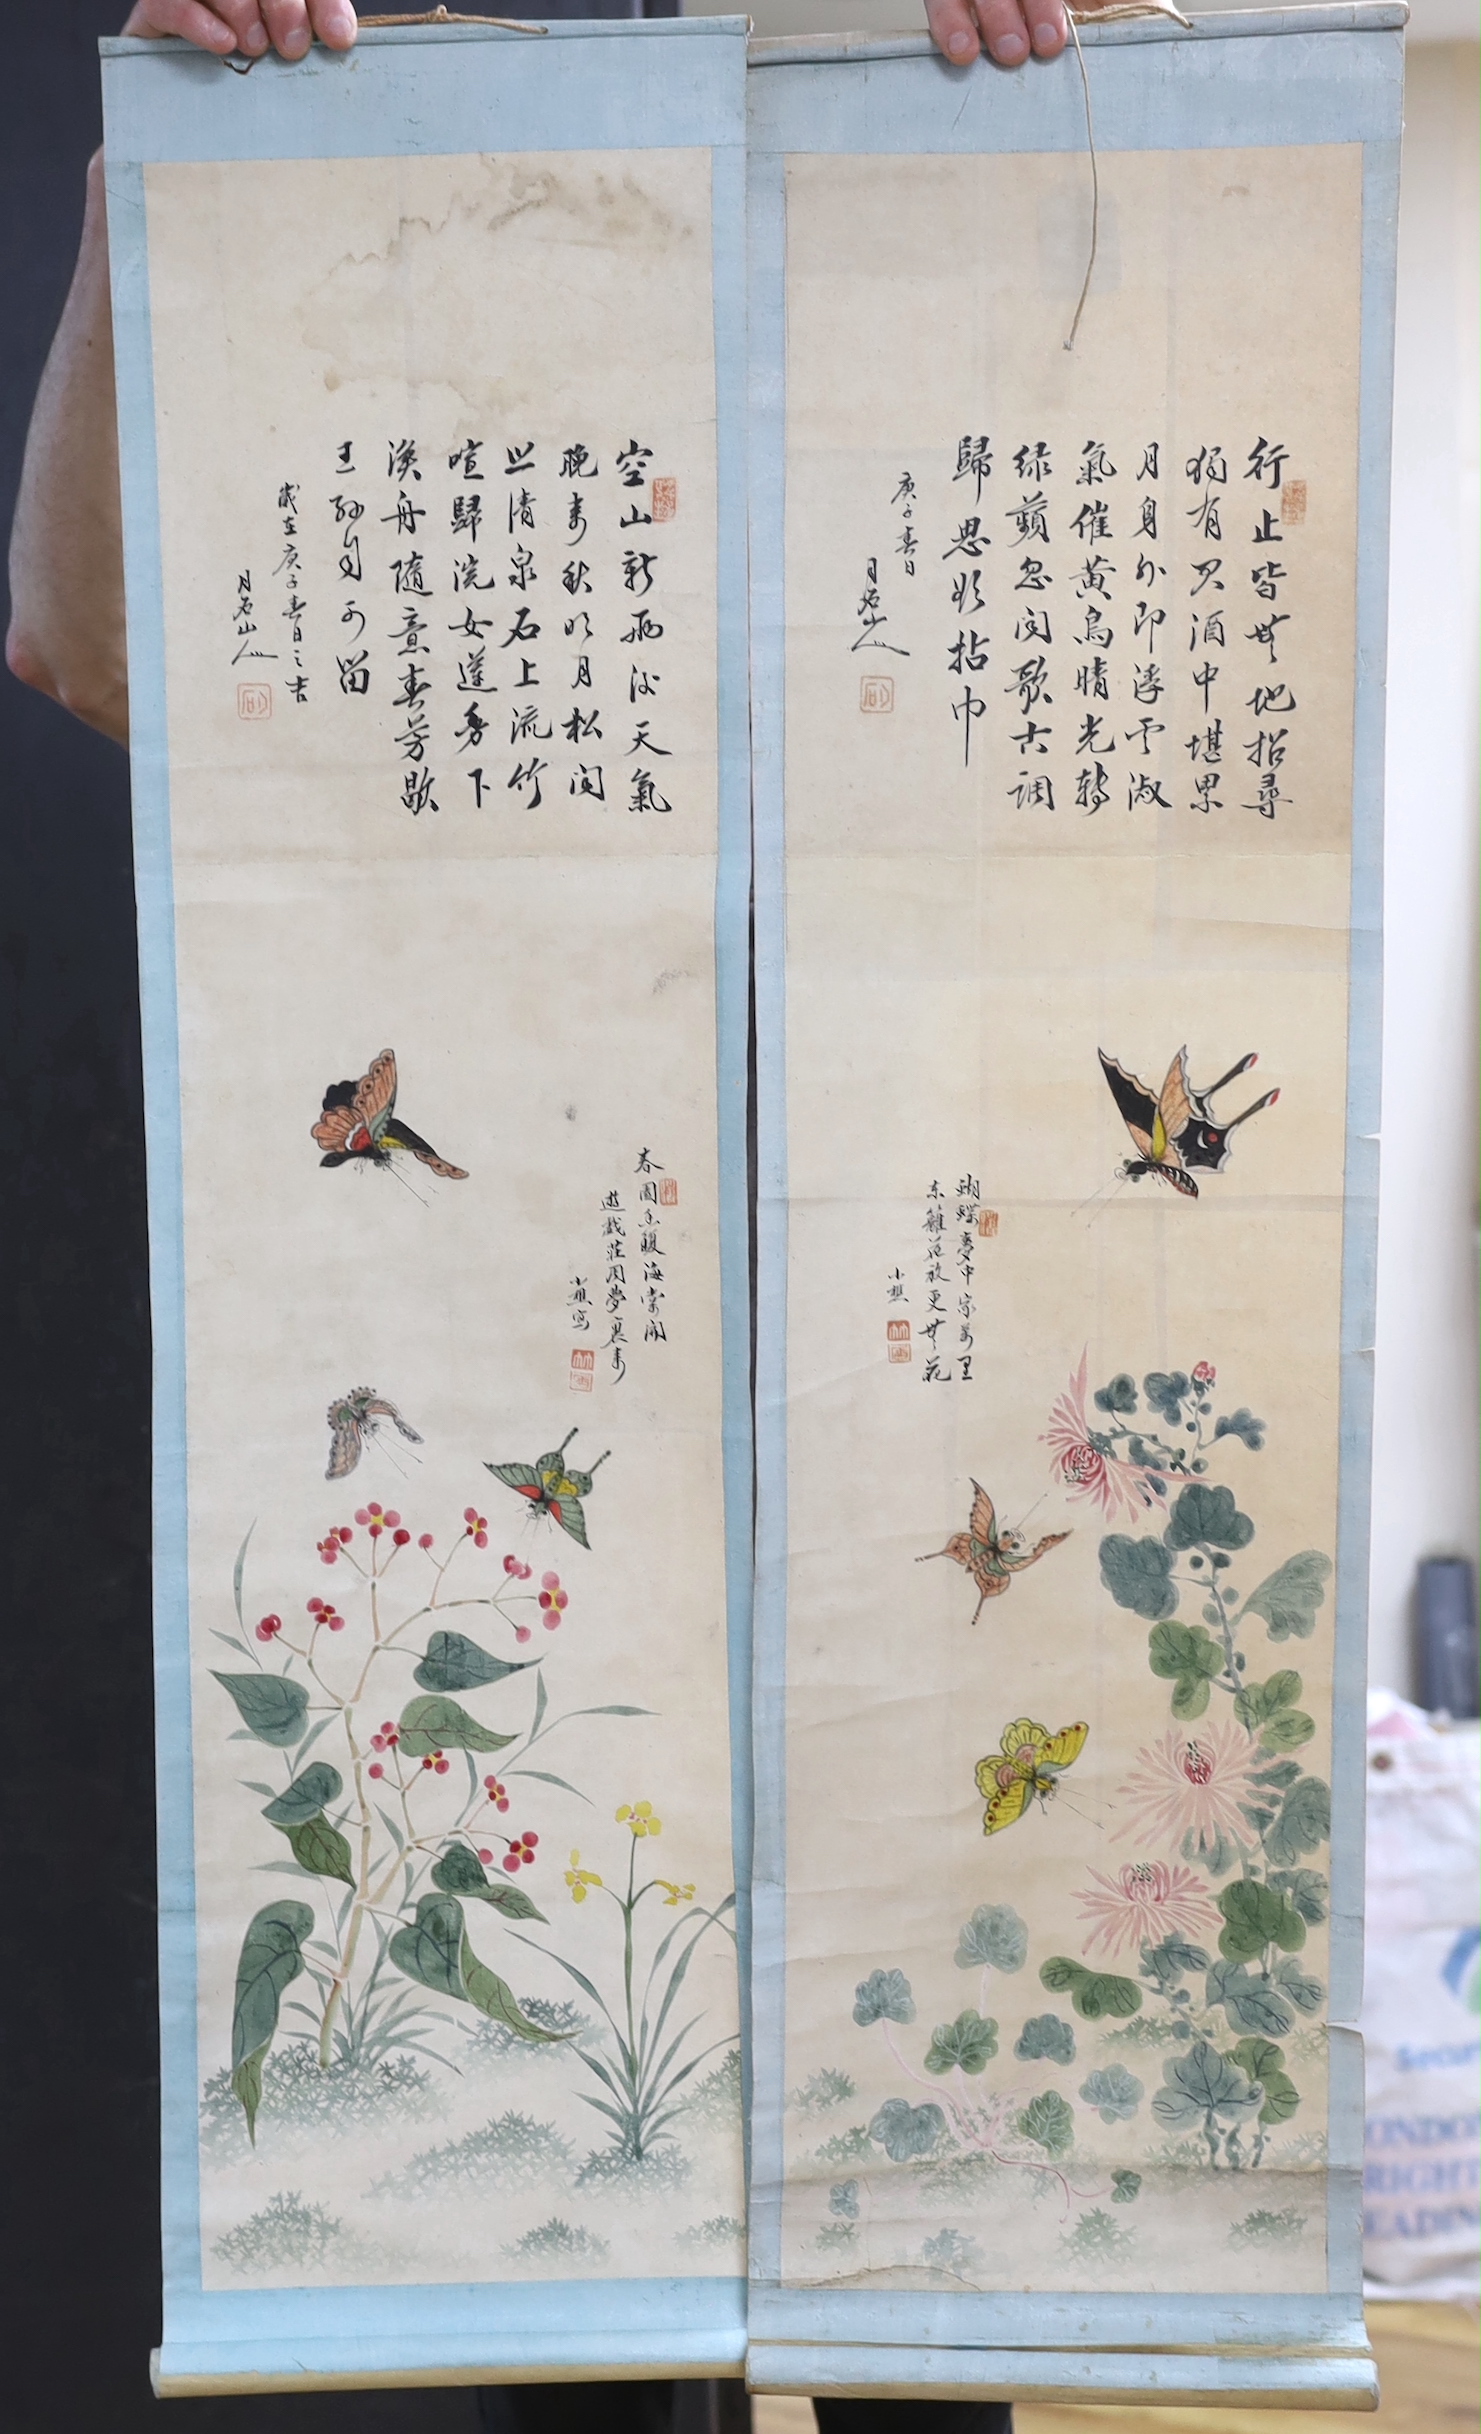 行止皆無地招尋
獨有君酒中堪累
月身外即浮雲淑
氣催黃鳥晴光轉
綠蘋忽聞歌古調
歸思欲拈巾
庚子春日
月石山人
蝴蝶夢中家萬里
东籬花放更無花
小樵
空山新雨後天氣
晚來秋明月松間
照清泉石上流竹
喧歸浣女蓮動下
漁舟隨意春芳歇
王孫自可留
歲在庚子春日之吉
月石山人
春園香暖海棠開
遊戲莊周夢裏來
小樵寫